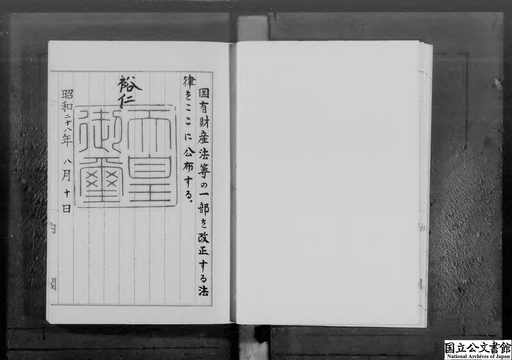 国有財産法等の一部を改正する法
律をここに公布する。
裕仁
天皇
御璽
昭和二十八年 八月 十日
内閣
国立公文書館
National Archives of Japan